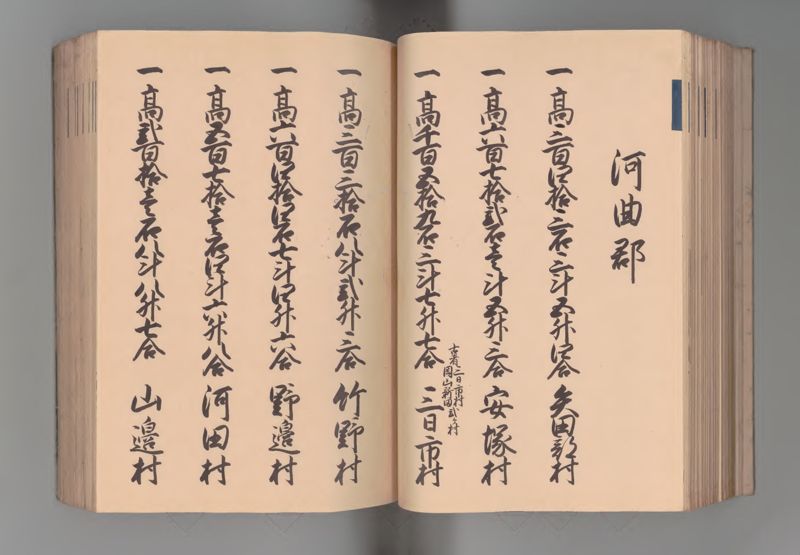 河曲郡
一高三百四拾三石三斗五升四合 矢田部村
一高六百七拾弐石壱斗五升三合 安塚村
一高千百五拾九石三斗七升七合 三日市村
古者三日市村
岡山新田弐ヶ村
一高三百三拾石八斗弐升三合 竹野村
一高六百四拾四石七斗四升六合 野邉村
一高五百七拾壱石四斗六升八合 河田村
一高弐百拾壱石八斗八升七合 山邉村